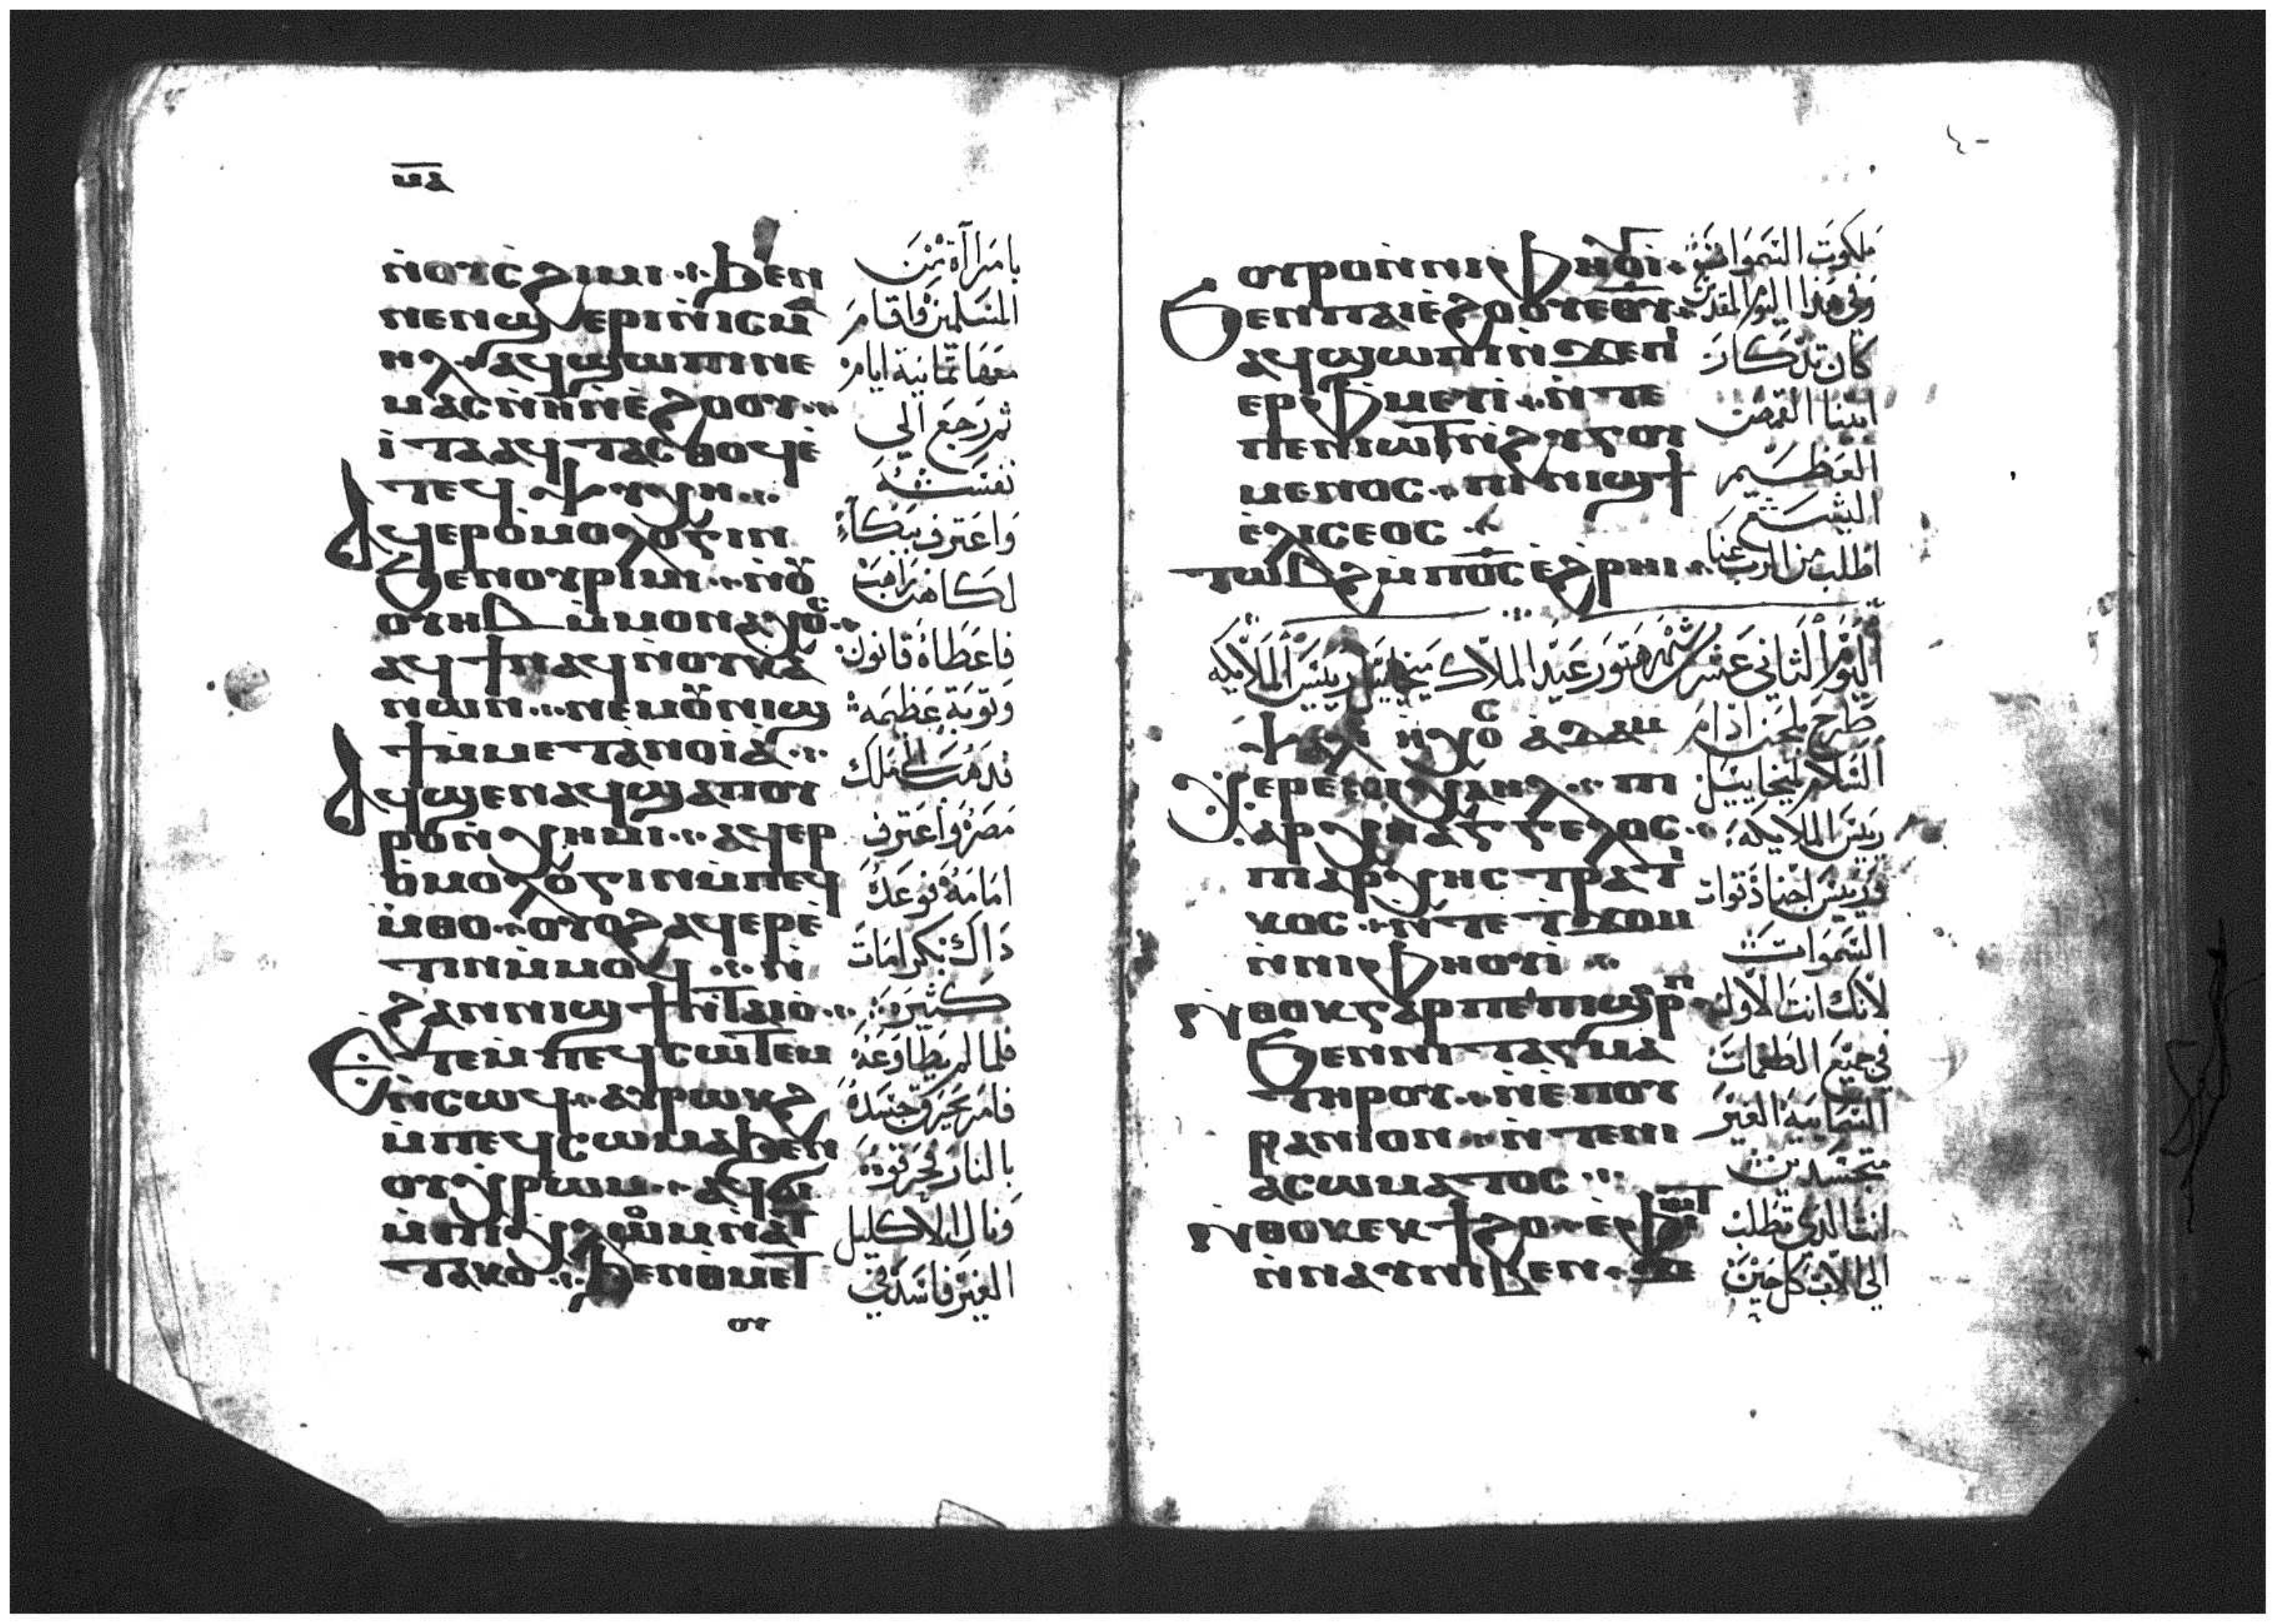 ⲙⲁ
ⲛ̀ⲟⲩⲥϩⲓⲙⲓ ⲃⲉⲛ
ⲛⲉⲛϣⲉⲣⲓⲛ̀ⲓⲥⲙ̄ⲁ
ⲏⲗ ⲁϥϣⲱⲡⲓⲛⲉ
ⲙⲁⲥⲛ̀ⲏ̄ⲛ̀ⲉ̀ϩⲟⲟⲩ
ⲓ̀ⲧⲁⲁϥⲧⲁⲥⲑⲟϥⲉ̀
ⲧⲉϥⲯⲩⲭⲏ
ⲁϥⲉⲣⲟ̀ⲙⲟⲗⲟⲅⲓⲛ
ϧⲉⲛⲟⲩⲣⲓⲙⲓ ⲛ̀ⲟ
ⲟⲩⲏⲃ ⲙ̀ⲙⲟⲛⲁⲭⲟⲥ
ⲁϥϯⲛⲁϥⲛ̀ⲟⲩⲕⲁ
ⲛⲱⲛ ⲛⲉⲙⲟⲩⲛⲓϣ
ϯⲙ̀ⲙⲉⲧⲁⲛⲟⲓⲁ̀
ⲁϥϣⲉⲛⲁϥϣⲁⲡⲟⲩ
ⲣⲟⲛ̀ⲭⲏⲙⲓ ⲁϥⲉⲣ
ⲟ̀ⲙⲟⲗⲟⲅⲓⲛⲙ̀ⲡⲉϥ
ⲙ̀ⲑⲟ ⲟⲩⲟϩⲁϥⲉⲣⲉ̀
ⲧⲓⲛⲙ̀ⲙⲟϥ ⲛ̀
ϩⲁⲛⲛⲓϣϯⲛ̀ⲧⲁⲓⲟ̀
ⲉⲧⲉⲙ̀ⲡⲉϥⲥⲱⲧⲉⲙ
ⲛ̀ⲥⲱϥ ⲁⲩⲣⲱⲕϩ
ⲙ̀ⲡⲉϥⲥⲱⲙⲁϧⲉⲛ
ⲟⲩⲭⲣⲱⲙ ⲁϥϭⲓ
ⲙ̀ⲡⲓⲭⲗⲟⲙⲛ̀ⲁⲧ
ⲧⲁⲕⲟ ϧⲉⲛⲑⲙⲉⲧ
ⲟⲩ
بامراة من
المسلمين فاقام
معها ثمانية ايام
ثم رجع الي
نفسه
واعترف ببكاء
لكاهن راهب
فاعطاه قانون
وتوبة عظيمة
قدمت الي ملك
مصر واعترف
امامه فوعد
ذاك بكرامات
كثيرة
فلما لم يطاوعه
فامر بحريق جسده
بالنار فحرقوه
ونال الاكليل
الغير فاسد في
٤٠
ⲟⲩⲣⲟⲛ̀ⲛⲓⲫⲏⲟⲩⲓ̀
ϧⲉⲛⲡⲁⲓⲉ̀ϩⲟⲟⲩⲉⲑⲩ
ⲁϥϣⲱⲡⲓⲛ̀ϫⲉⲡⲓ
ⲉⲣⲫⲙⲉⲩⲓ̀ ⲛ̀ⲧⲉ
ⲡⲉⲛⲓⲱⲧⲛ̀ϩⲩⲅⲟⲩ
ⲙⲉⲛⲟⲥ ⲡⲓⲛⲓϣϯ
ⲉ̀ⲗⲓⲥⲉⲟⲥ
ⲧⲱⲃϩⲙ̀ⲡⲟ̅ⲥ̅ⲉ̀ϩⲣⲏⲓ
ملكوت السموات
وفي هذا اليوم المقدس
كان تذكار
ابينا القمص
العظيم
اليشع
اطلب من الرب عنا
اليوم الثاني عشر شهر هتور عيد الملاك ميخاييل رييس الملايكه
ⲯⲁⲗⲓ ⲛ̀ⲭⲟⲥ ⲁⲇⲁⲙ طرح بلحن ادام
ⲭⲉⲣⲉⲙⲓⲭⲁⲏⲗ ⲡⲓ
ⲁⲣⲭⲏⲁⲅⲅⲉⲗⲟⲥ
ⲡⲓⲁⲣⲭⲏⲥⲧⲣⲁⲧⲓ
ⲕⲟⲥ ⲛ̀ⲧⲉⲧϫⲟⲙ
ⲛ̀ⲛⲓⲫⲏⲟⲩⲓ̀
ⲛ̀ⲑⲟⲕⲅⲁⲣⲡⲉⲡⲓϣⲟⲣⲡ
ϧⲉⲛⲛⲓⲧⲁⲅⲙⲁ
ⲧⲏⲣⲟⲩ ⲛ̀ⲉ̀ⲡⲟⲩ
ⲣⲁⲛⲓⲟⲛ ⲛ̀ⲧⲉⲛⲓ
ⲁⲥⲱⲙⲁⲧⲟⲥ
ⲛ̀ⲑⲟⲕⲉⲕϯϩⲟ ⲉ̀ⲫⲓⲱⲧ
ⲛ̀ⲛⲁⲩⲛⲓⲃⲉⲛ ϫⲉ
السلام لميخاييل
رييس الملايكة
ورييس اجناد قوات
السموات
لانك انت الاول
في جميع الطغمات
السمايية الغير
متجسدين
انت الذي تطلب
الي الاب كل حين